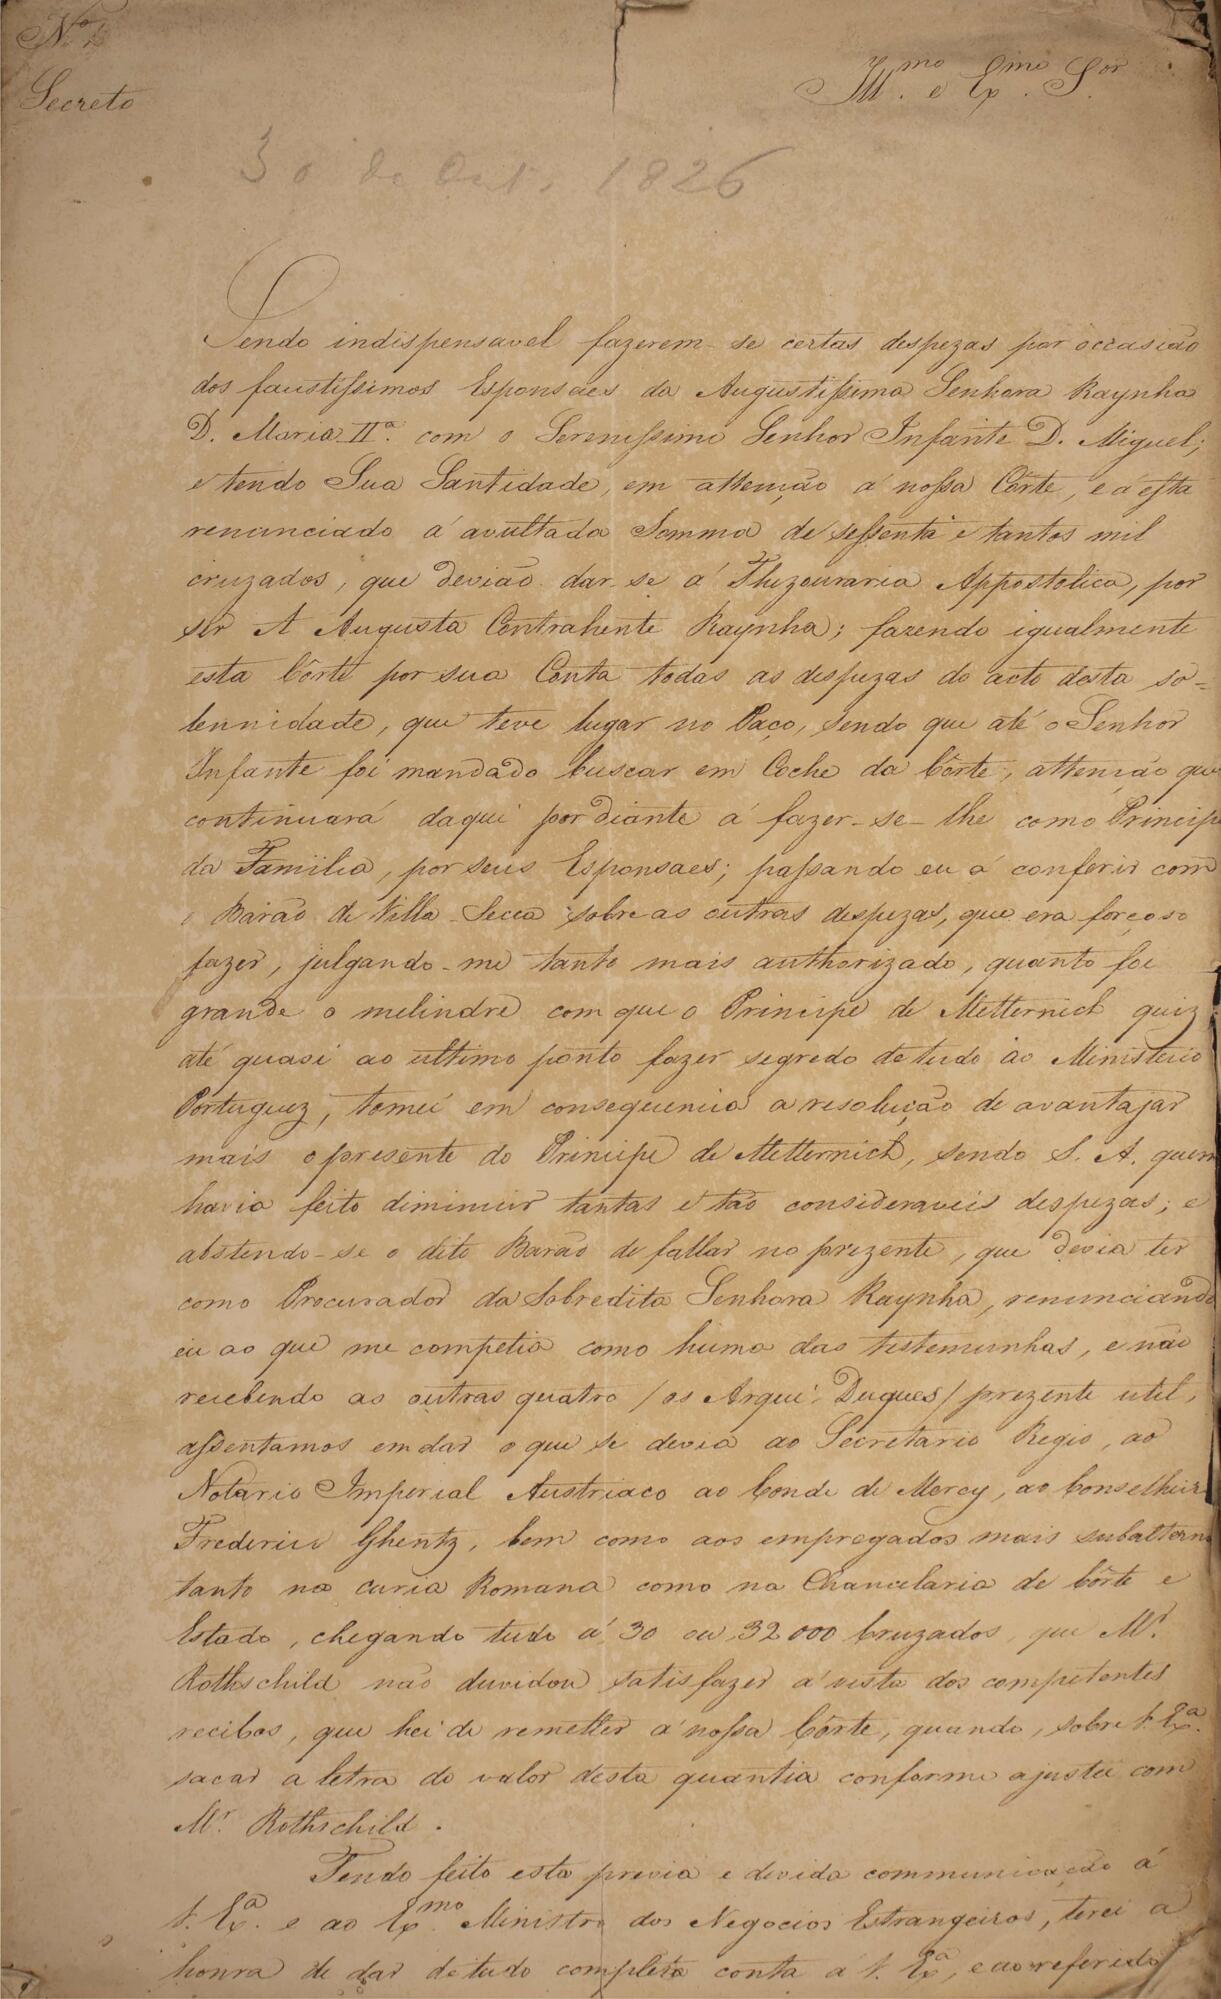 Nº 
Secreto
Ill.mo e Ex.mo S.or
30 de Out. 1826
Sendo indispensavel fazerem-se certas despezas por occasião
dos faustissimos Esponsaes da Augustissima Senhora Raynha
D. Maria IIª. com o Serenissimo Senhor Infante D. Miguel;
e tendo Sua Santidade, em attenção á nossa Côrte, e a esta
renunciado á avultada Somma de sessenta e tantos mil
cruzados, que devião dar-se á Thezouraria Appostolica, por
ser A Augusta Contrahente Raynha; fazendo igualmente
esta Côrte por sua Conta todas as despezas do acto desta so=
lennidade, que teve lugar no Paço, sendo que até o Senhor
Infante foi mandado buscar em Coche da Côrte, attenção que
continuará daqui por diante á fazer-se-lhe como Principe
da Familia, por seus Esponsaes; passando eu á conferir com
o Barão de Villa-Secca sobre as outras despezas, que era forçoso
fazer, julgando-me tanto mais authorizado, quanto foi
grande o melindre com que o Principe de Metternich quiz
até quasi ao ultimo ponto fazer segredo de tudo ao Ministerio
Portuguez, tomei em consequencia a resolução de avantajar
mais o presente do Principe de Metternich, sendo S. A. quem
havia feito diminuir tantas e tão consideraveis despezas; e
abstendo-se o dito Barão de fallar no prezente, que devia ter
como Procurador da Sobredita Senhora Raynha, renunciando
eu ao que me competia como huma das testemunhas, e não
recebendo as outras quatro /os Arqui-Duques/ prezente util,
assentamos em dar o que se devia ao Secretario Regio, ao
Notario Imperial Austriaco ao Conde de Mercy, ao Conselheiro
Frederico Ghentz, bem como aos empregados mais subalternos
tanto na curia Romana como na Chancelaria de Côrte e
Estado, chegando tudo á 30 ou 32000 Cruzados, que Mr.
Rothschild não duvidou satisfazer á vista dos competentes
recibos, que hei de remetter á nossa Côrte, quando, sobre V. Exª.
sacar a letra do valor desta quantia conforme ajustei com
Mr. Rothschild.
Tendo feito esta previa e devida communicação á
V. Exª. e ao Ex.mo Ministro dos Negocios Estrangeiros, terei a
honra de dar de tudo completa conta a V. Exª, e ao referido